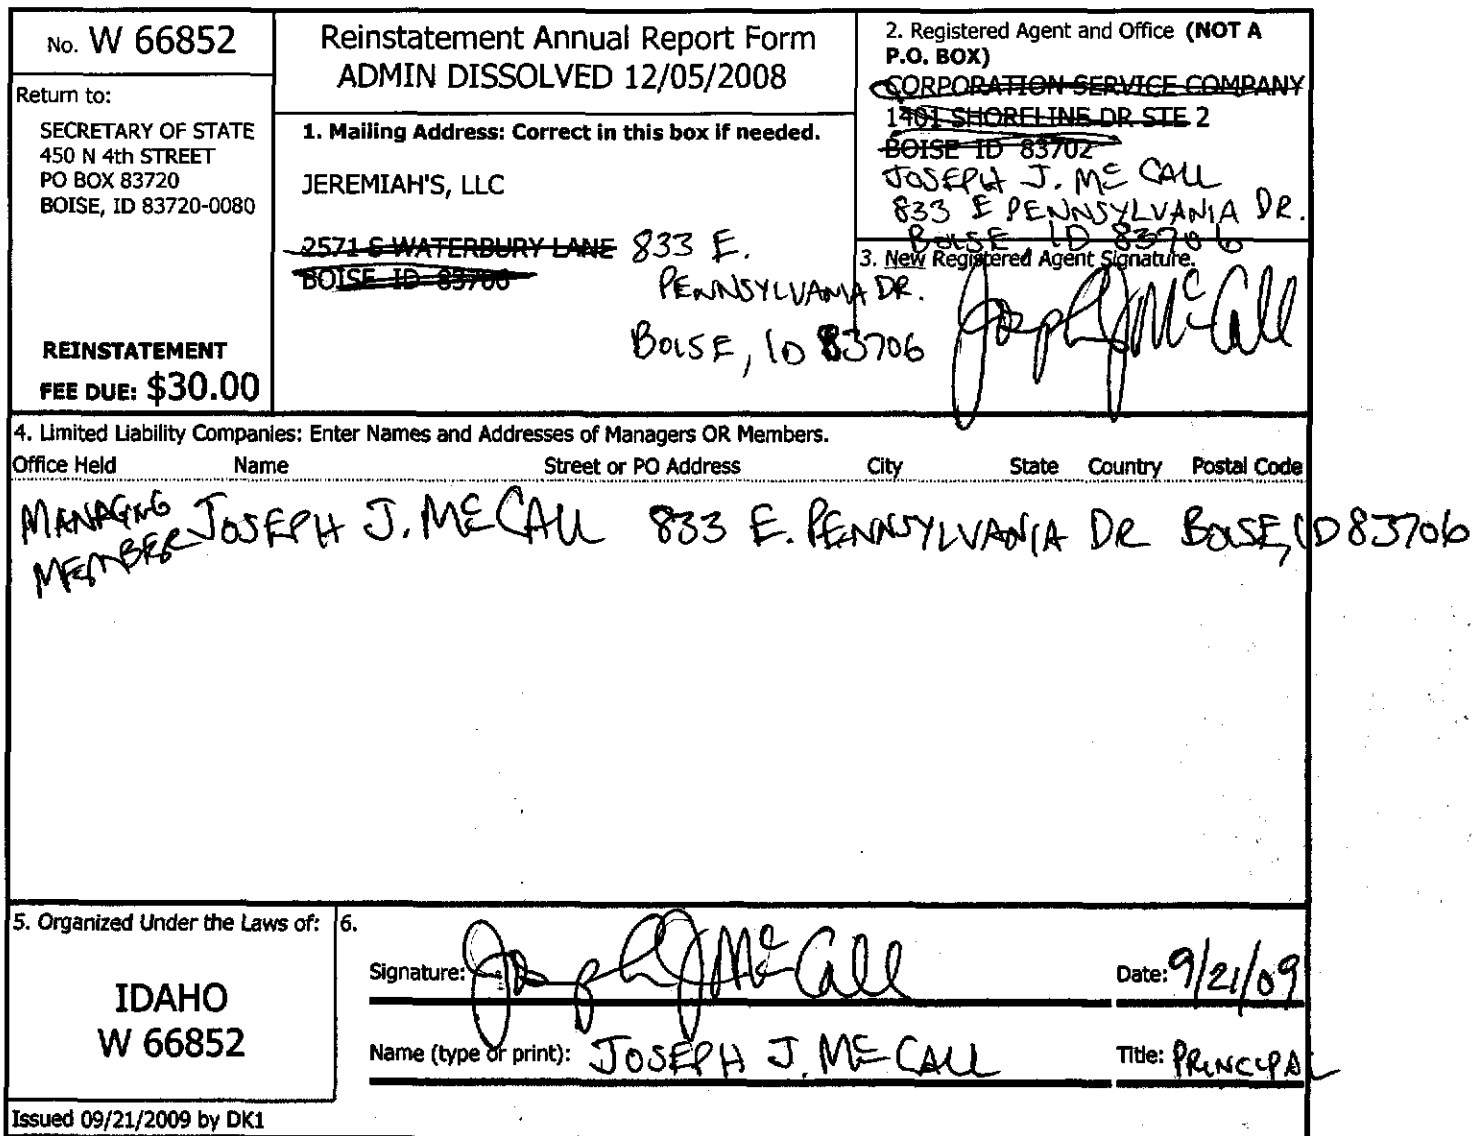 No. W 66852
Return to:
SECRETARY OF STATE
450 N 4th STREET
PO BOX 83720
BOISE, ID 83720-0080
REINSTATEMENT
FEE DUE: $30.00
Reinstatement Annual Report Form
ADMIN DISSOLVED 12/05/2008
1. Mailing Address: Correct in this box if needed.
JEREMIAH'S, LLC
2571 S WATERBURY LANE 833 E.
BOISE ID 83706 PENNSYLVANIA DR.
BOISE, ID 83706
2. Registered Agent and Office (NOT A
P.O. BOX)
CORPORATION SERVICE COMPANY
1401 SHORELINE DR STE 2
BOISE ID 83702
JOSEPH J. McCALL
833 E PENNSYLVANIA DR.
BOISE ID 83706
3. New Registered Agent Signature.
Joseph J McCall
4. Limited Liability Companies: Enter Names and Addresses of Managers OR Members.
Office Held Name Street or PO Address City State Country Postal Code
MANAGING MEMBER JOSEPH J. McCALL 833 E. PENNSYLVANIA DR BOISE, ID 83706
5. Organized Under the Laws of:
IDAHO
W 66852
6.
Signature: Joseph J McCall Date: 9/21/09
Name (type or print): JOSEPH J. McCALL Title: PRINCIPAL
Issued 09/21/2009 by DK1